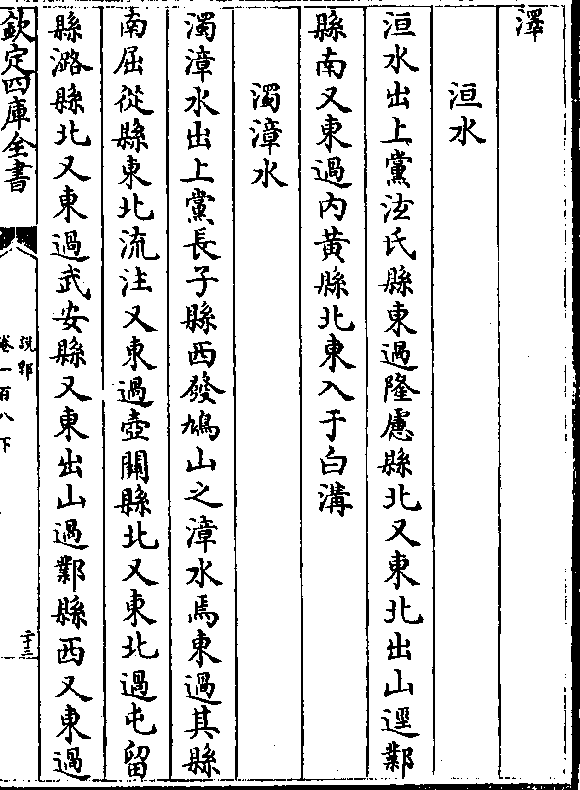 澤
洹水
洹水出上黨泫氏縣東過隆慮縣北又東北出山逕鄴
縣南又東過内黄縣北東入于白溝
濁漳水
濁漳水出上黨長子縣西發鳩山之漳水焉東過其縣
南屈從縣東北流注又東過壺關縣北又東北過屯留
縣潞縣北又東過武安縣又東出山過鄴縣西又東過
欽定四庫全書
說郛
卷一百八下
二十三